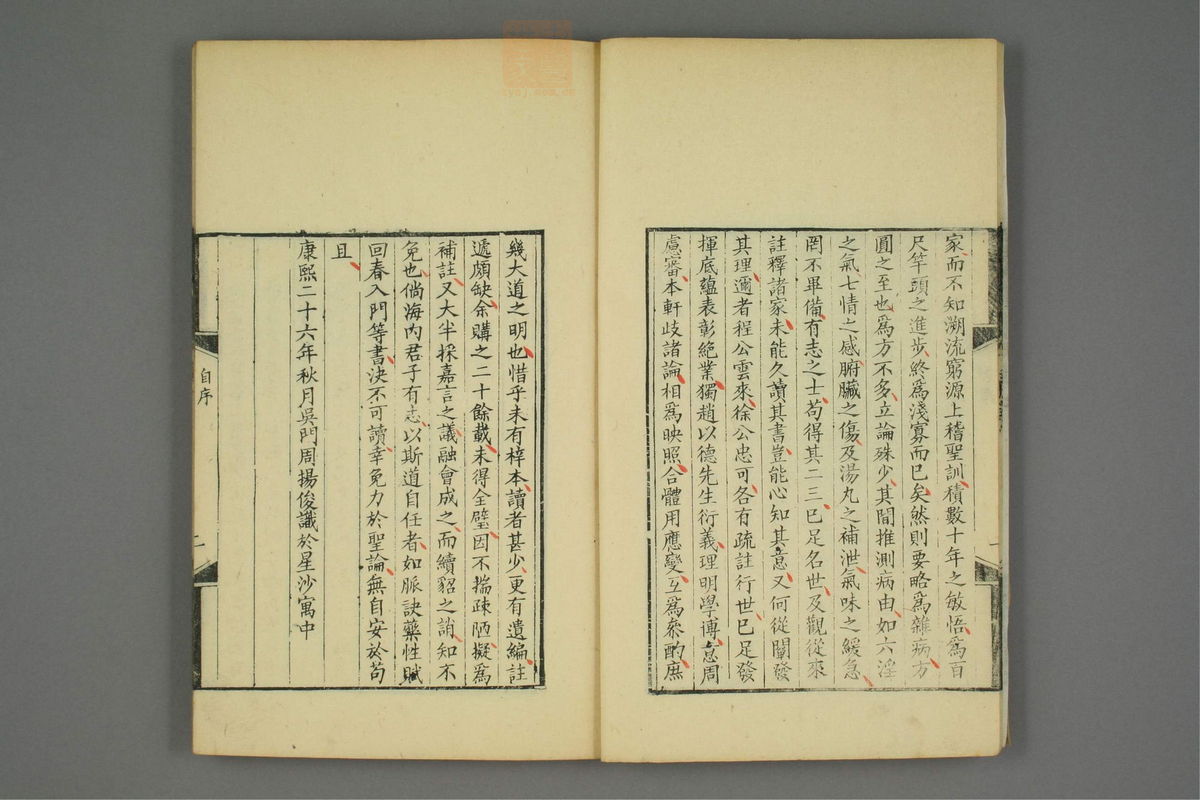 家而不知溯流窮源上稽聖訓積數十年之敏悟爲百
尺竿頭之進步終爲淺寡而已矣然則要略爲雜病方
圓之至也爲方不多立論殊少其間推測病由如六淫
之氣七情之感腑臟之傷及湯丸之補泄氣味之緩急
罔不畢備有志之士苟得其二三已足名世及觀從來
註釋諸家未能久讀其書豈能心知其意又何從闡發
其理邇者程公雲來徐公忠可各有疏註行世已足發
揮底蘊表彰絕業獨趙以德先生衍義理明學博意周
慮審本軒歧諸論相爲映照合體用應變互爲叅酌庶
幾大道之明也惜乎未有梓本讀者甚少更有遺編註
遞頗缺余購之二十餘載未得全璧因不揣疎陋擬爲
補註又大半採嘉言之議融會成之而續貂之誚知不
免也倘海內君子有志以斯道自任者如脈訣藥性賦
回春入門等書決不可讀幸免力於聖論無自安於苟
且
康熙二十六年秋月吳門周揚俊識於星沙寓中
自序
二